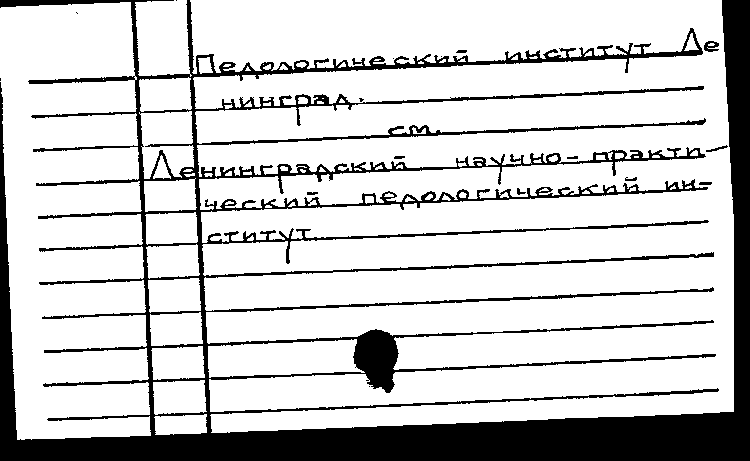 Педологический институт Ле
нинград.
см.
Ленинградский научно-практи-
ческий педологический ин-
ститут.